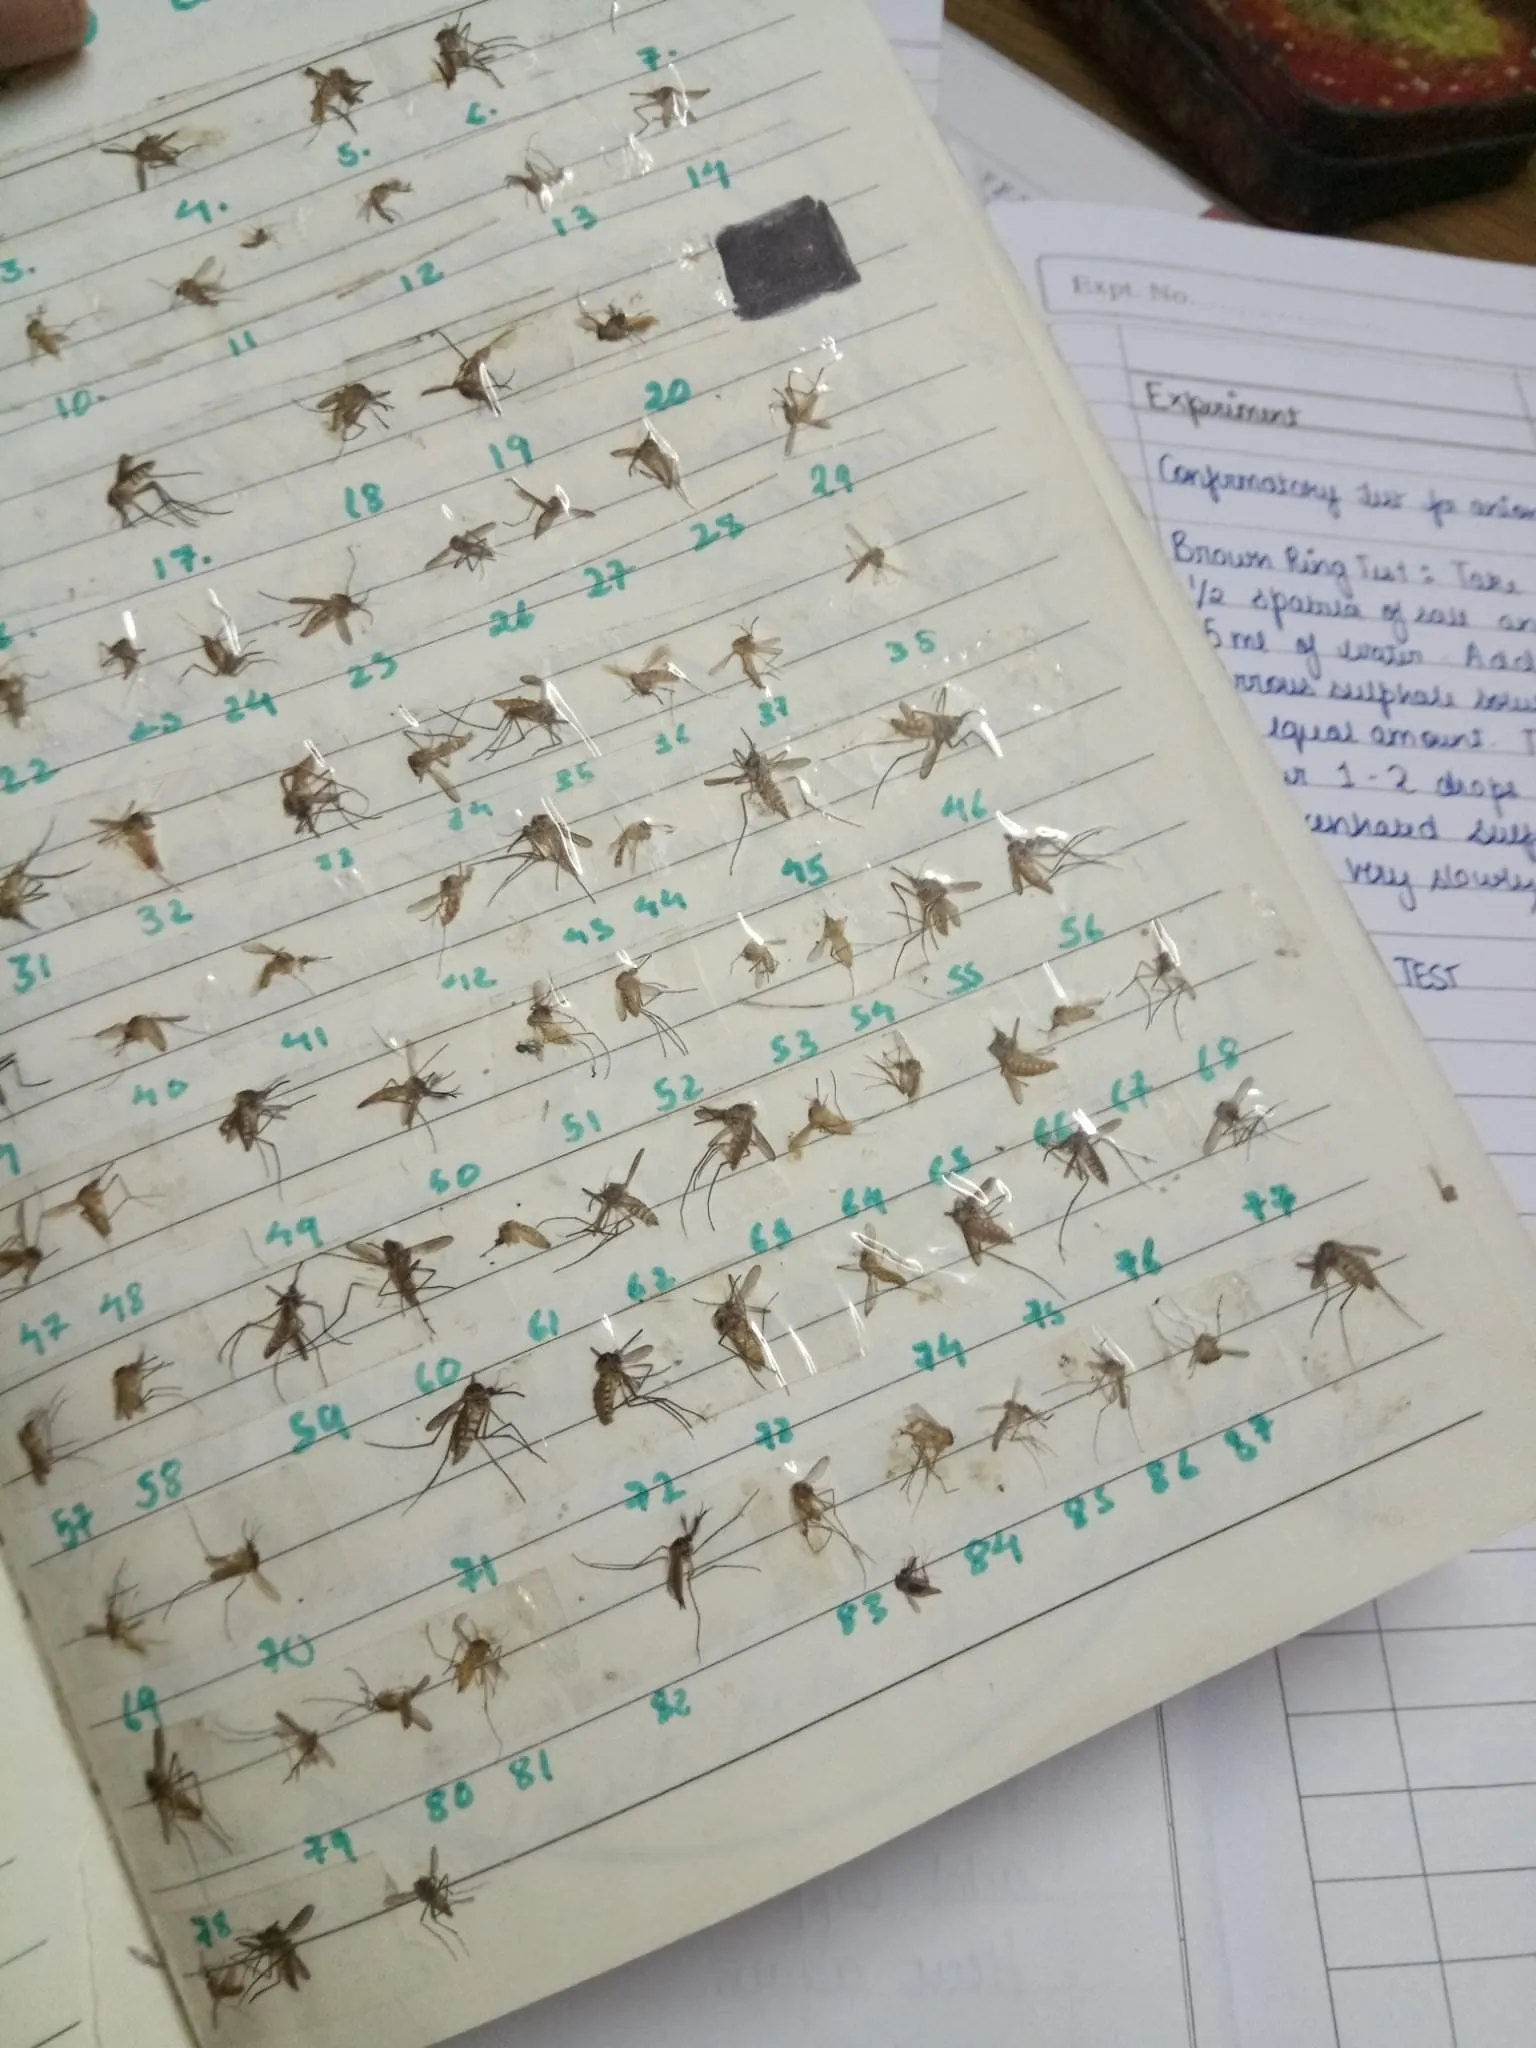 3. 4. 5. 6. 7.
10. 11 12 13 14
17. 18 19 20
22 23 24 25 26 27 28 29
31 32 33 34 35 36 37 35
40 41 42 43 44 45 46
47 48 49 50 51 52 53 54 55 56
57 58 59 60 61 62 63 64 65 66 67 68
69 70 71 72 73 74 75 76 77
78 79 80 81 82 83 84 85 86 87
Expt. No.
Experiment
Confirmatory test for anion
Brown Ring Test : Take
1/2 spatula of salt an
5 ml of water. Add
rrous sulphate
equal amount. T
1-2 drops
very slowly
TEST